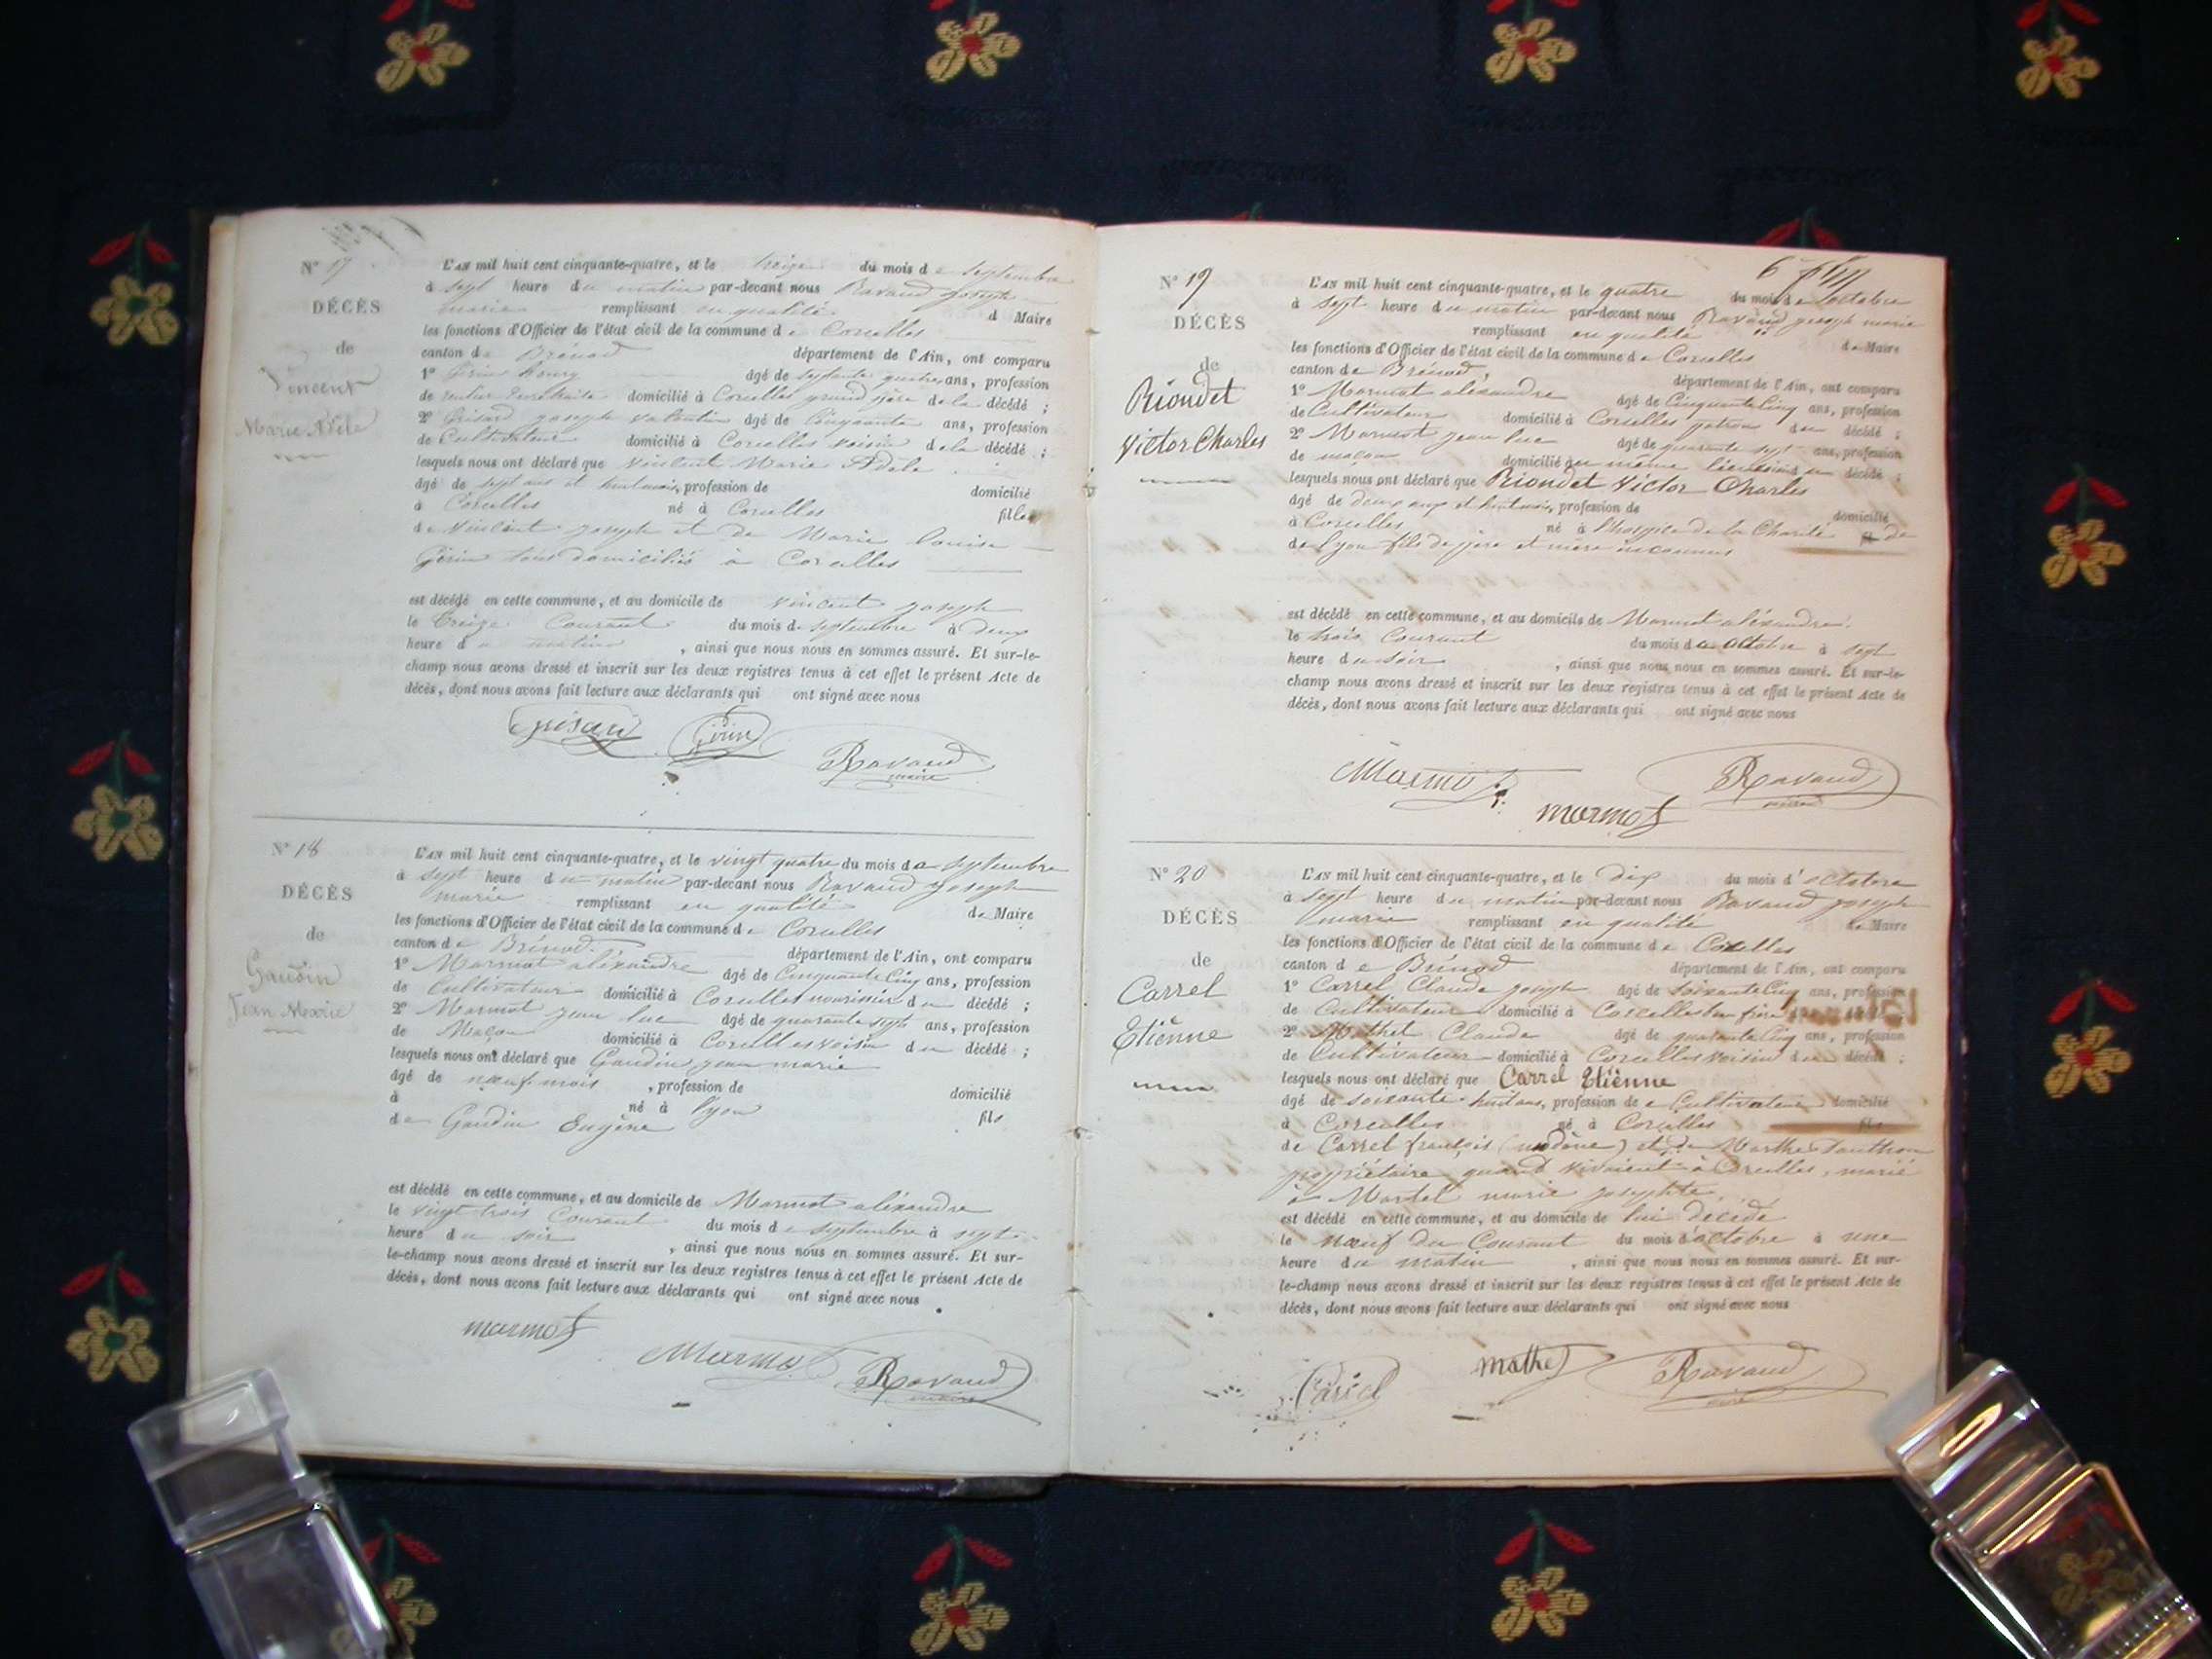 N° 17
DÉCÈS
de
Vincent
Marie Adèle
L'AN mil huit cent cinquante-quatre, et le treize du mois de septembre
à sept heure du matin par-devant nous Ravaud joseph
marie remplissant en qualité d Maire
les fonctions d'Officier de l'état civil de la commune de Corcelles
canton de Brénod département de l'Ain, ont comparu
1° âgé de ans, profession
de domicilié à Corcelles grand père de la décédé ;
2° Grisard joseph valentin âgé de Cinquante ans, profession
de Cultivateur domicilié à Corcelles voisin de la décédé ;
lesquels nous ont déclaré que vincent Marie Adèle
âgé de sept ans et huit mois, profession de domicilié
à Corcelles né à Corcelles fille
de Vincent joseph et de Marie louise
Girin tous domiciliés à Corcelles
est décédé en cette commune, et au domicile de vincent joseph
le treize Courant du mois de septembre à deux
heure du matin, ainsi que nous nous en sommes assuré. Et sur-le-
champ nous avons dressé et inscrit sur les deux registres tenus à cet effet le présent Acte de
décès, dont nous avons fait lecture aux déclarants qui ont signé avec nous
Grisard Girin Ravaud
maire
N° 18
DÉCÈS
de
Gaudin
Jean Marie
L'AN mil huit cent cinquante-quatre, et le vingt quatre du mois de septembre
à sept heure du matin par-devant nous Ravaud joseph
marie remplissant en qualité de Maire
les fonctions d'Officier de l'état civil de la commune de Corcelles
canton de Brénod département de l'Ain, ont comparu
1° Marmot aléxandre âgé de Cinquante Cinq ans, profession
de Cultivateur domicilié à Corcelles nourissier du décédé ;
2° Marmot jean luc âgé de quarante sept ans, profession
de Maçon domicilié à Corcelles voisin du décédé ;
lesquels nous ont déclaré que Gaudin jean marie
âgé de nœuf mois, profession de domicilié
à né à lyon fils
de Gaudin Eugène
est décédé en cette commune, et au domicile de Marmot aléxandre
le vingt trois Courant du mois de septembre à sept
heure du soir, ainsi que nous nous en sommes assuré. Et sur-
le-champ nous avons dressé et inscrit sur les deux registres tenus à cet effet le présent Acte de
décès, dont nous avons fait lecture aux déclarants qui ont signé avec nous
marmot Marmot Ravaud
maire
N° 19
DÉCÈS
de
Riondet
Victor Charles
L'AN mil huit cent cinquante-quatre, et le quatre du mois de octobre
à sept heure du matin par-devant nous Ravaud joseph marie
remplissant en qualité de Maire
les fonctions d'Officier de l'état civil de la commune de Corcelles
canton de Brénod, département de l'Ain, ont comparu
1° Marmot aléxandre âgé de Cinquante Cinq ans, profession
de Cultivateur domicilié à Corcelles patron du décédé ;
2° Marmot jean luc âgé de quarante sept ans, profession
de maçon domicilié au même lieu voisin du décédé ;
lesquels nous ont déclaré que Riondet Victor Charles
âgé de deux ans et huit mois, profession de domicilié
à Corcelles né à l'hospice de la Charité de
de lyon fils de père et mère inconnus
est décédé en cette commune, et au domicile de Marmot aléxandre.
le trois Courant du mois de octobre à sept
heure du soir, ainsi que nous nous en sommes assuré. Et sur-le-
champ nous avons dressé et inscrit sur les deux registres tenus à cet effet le présent Acte de
décès, dont nous avons fait lecture aux déclarants qui ont signé avec nous
Marmot Ravaud
marmot maire
N° 20
DÉCÈS
de
Carrel
Etiènne
L'AN mil huit cent cinquante-quatre, et le dix du mois d'octobre
à sept heure du matin par-devant nous Ravaud joseph
marie remplissant en qualité de Maire
les fonctions d'Officier de l'état civil de la commune de Corcelles
canton de Brénod département de l'Ain, ont comparu
1° Carrel Claude joseph âgé de soixante Cinq ans, profession
de Cultivateur domicilié à Corcelles frère
2° Mathet Claude âgé de quarante Cinq ans, profession
de Cultivateur domicilié à Corcelles voisin du décédé ;
lesquels nous ont déclaré que Carrel Etiènne
âgé de soixante huit ans, profession de Cultivateur domicilié
à Corcelles né à Corcelles fils
de Carrel françois et de Marthe
propriétaire quand vivaient à Corcelles, marié
à Martel marie josephte
est décédé en cette commune, et au domicile de lui décédé
le nœuf du Courant du mois d'octobre à une
heure du matin, ainsi que nous nous en sommes assuré. Et sur-
le-champ nous avons dressé et inscrit sur les deux registres tenus à cet effet le présent Acte de
décès, dont nous avons fait lecture aux déclarants qui ont signé avec nous
Carrel mathet Ravaud
maire